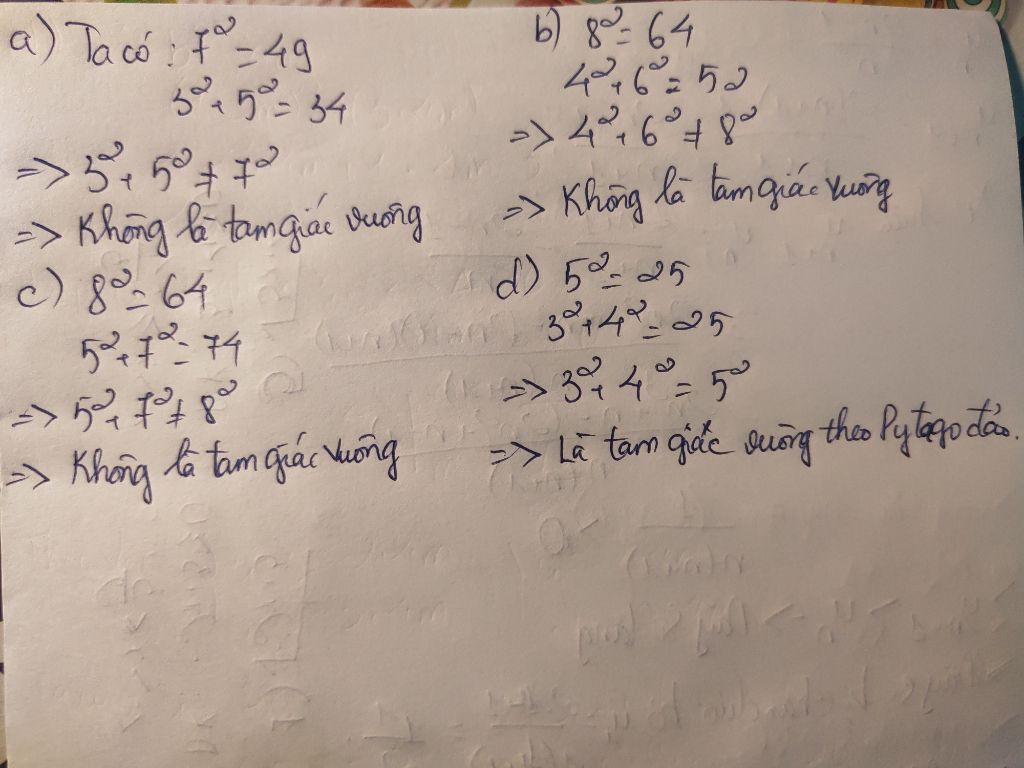 a) Ta có : 7² = 49
3² + 5² = 34
=> 3² + 5² ≠ 7²
=> Không là tam giác vuông
b) 8² = 64
4² + 6² = 52
=> 4² + 6² ≠ 8²
=> Không là tam giác vuông
c) 8² = 64
5² + 7² = 74
=> 5² + 7² ≠ 8²
=> Không là tam giác vuông
d) 5² = 25
3² + 4² = 25
=> 3² + 4² = 5²
=> Là tam giác vuông theo Pytago đảo.